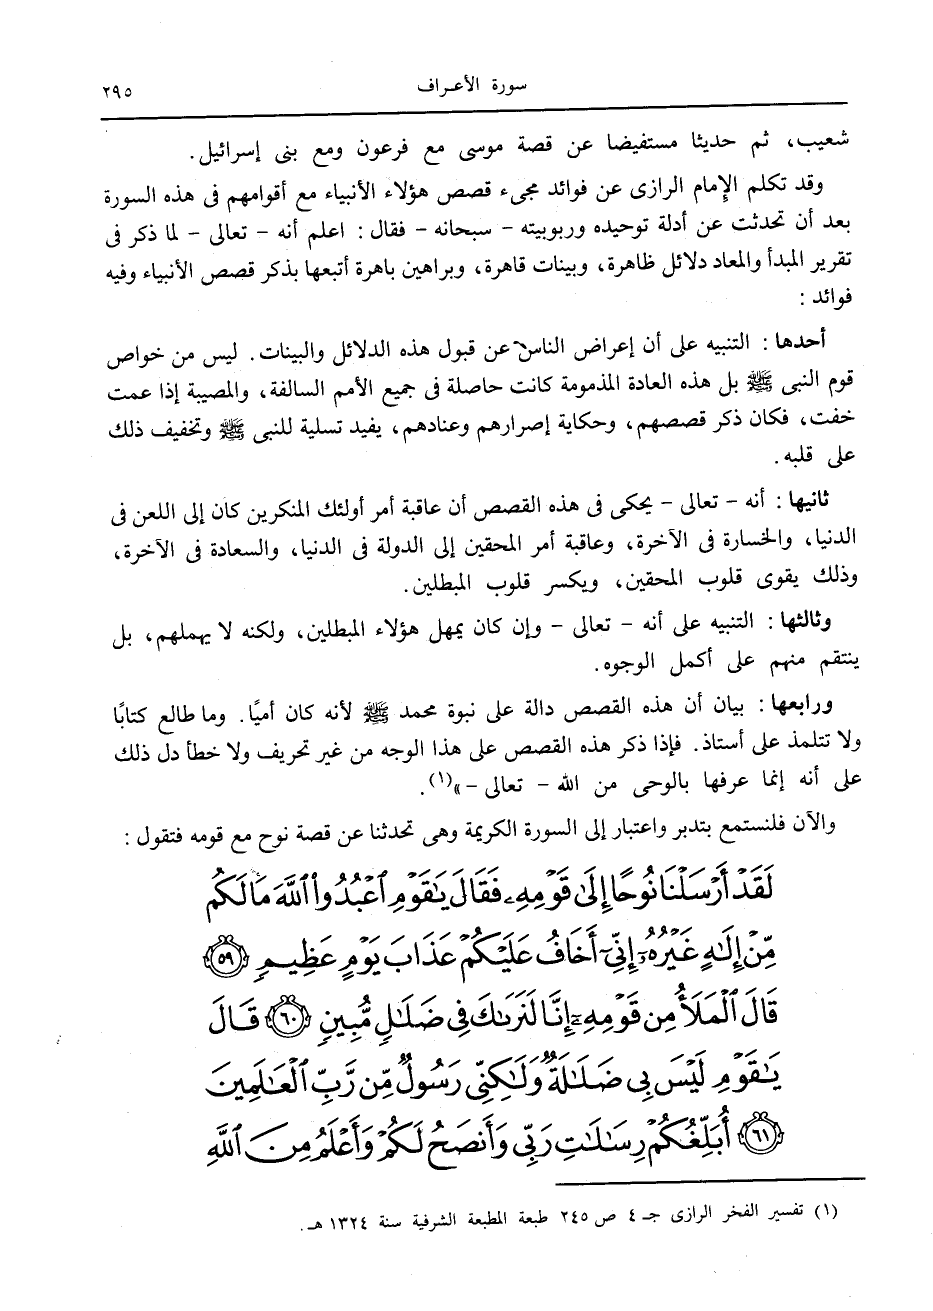 سورة الأعراف ٢٩٥
شعيب، ثم حديثا مستفيضا عن قصة موسى مع فرعون ومع بنى إسرائيل.
وقد تكلم الإمام الرازى عن فوائد مجىء قصص هؤلاء الأنبياء مع أقوامهم فى هذه السورة
بعد أن تحدثت عن أدلة توحيده وربوبيته - سبحانه - فقال : اعلم أنه - تعالى - لما ذكر فى
تقرير المبدأ والمعاد دلائل ظاهرة، وبينات قاهرة، وبراهين باهرة أتبعها بذكر قصص الأنبياء وفيه
فوائد :
أحدها : التنبيه على أن إعراض الناس عن قبول هذه الدلائل والبينات. ليس من خواص
قوم النبى ﷺ بل هذه العادة المذمومة كانت حاصلة فى جميع الأمم السالفة، والمصيبة إذا عمت
خفت، فكان ذكر قصصهم، وحكاية إصرارهم وعنادهم، يفيد تسلية للنبى ﷺ وتخفيف ذلك
على قلبه.
ثانيها : أنه - تعالى - يحكى فى هذه القصص أن عاقبة أمر أولئك المنكرين كان إلى اللعن فى
الدنيا، والخسارة فى الآخرة، وعاقبة أمر المحقين إلى الدولة فى الدنيا، والسعادة فى الآخرة،
وذلك يقوى قلوب المحقين، ويكسر قلوب المبطلين.
وثالثها : التنبيه على أنه - تعالى - وإن كان يمهل هؤلاء المبطلين، ولكنه لا يهملهم، بل
ينتقم منهم على أكمل الوجوه.
ورابعها : بيان أن هذه القصص دالة على نبوة محمد ﷺ لأنه كان أميًا. وما طالع كتابًا
ولا تتلمذ على أستاذ. فإذا ذكر هذه القصص على هذا الوجه من غير تحريف ولا خطأ دل ذلك
على أنه إنما عرفها بالوحى من الله - تعالى -»(١).
والآن فلنستمع بتدبر واعتبار إلى السورة الكريمة وهى تحدثنا عن قصة نوح مع قومه فتقول :
لَقَدْ أَرْسَلْنَا نُوحًا إِلَىٰ قَوْمِهِۦ فَقَالَ يَـٰقَوْمِ ٱعْبُدُوا۟ ٱللَّهَ مَا لَكُم
مِّنْ إِلَـٰهٍ غَيْرُهُۥٓ إِنِّىٓ أَخَافُ عَلَيْكُمْ عَذَابَ يَوْمٍ عَظِيمٍ ٥٩
قَالَ ٱلْمَلَأُ مِن قَوْمِهِۦٓ إِنَّا لَنَرَىٰكَ فِى ضَلَـٰلٍ مُّبِينٍ ٦٠ قَالَ
يَـٰقَوْمِ لَيْسَ بِى ضَلَـٰلَةٌ وَلَـٰكِنِّى رَسُولٌ مِّن رَّبِّ ٱلْعَـٰلَمِينَ
٦١ أُبَلِّغُكُمْ رِسَـٰلَـٰتِ رَبِّى وَأَنصَحُ لَكُمْ وَأَعْلَمُ مِنَ ٱللَّهِ
(١) تفسير الفخر الرازى جـ ٤ ص ٢٤٥ طبعة المطبعة الشرفية سنة ١٣٢٤ هـ.